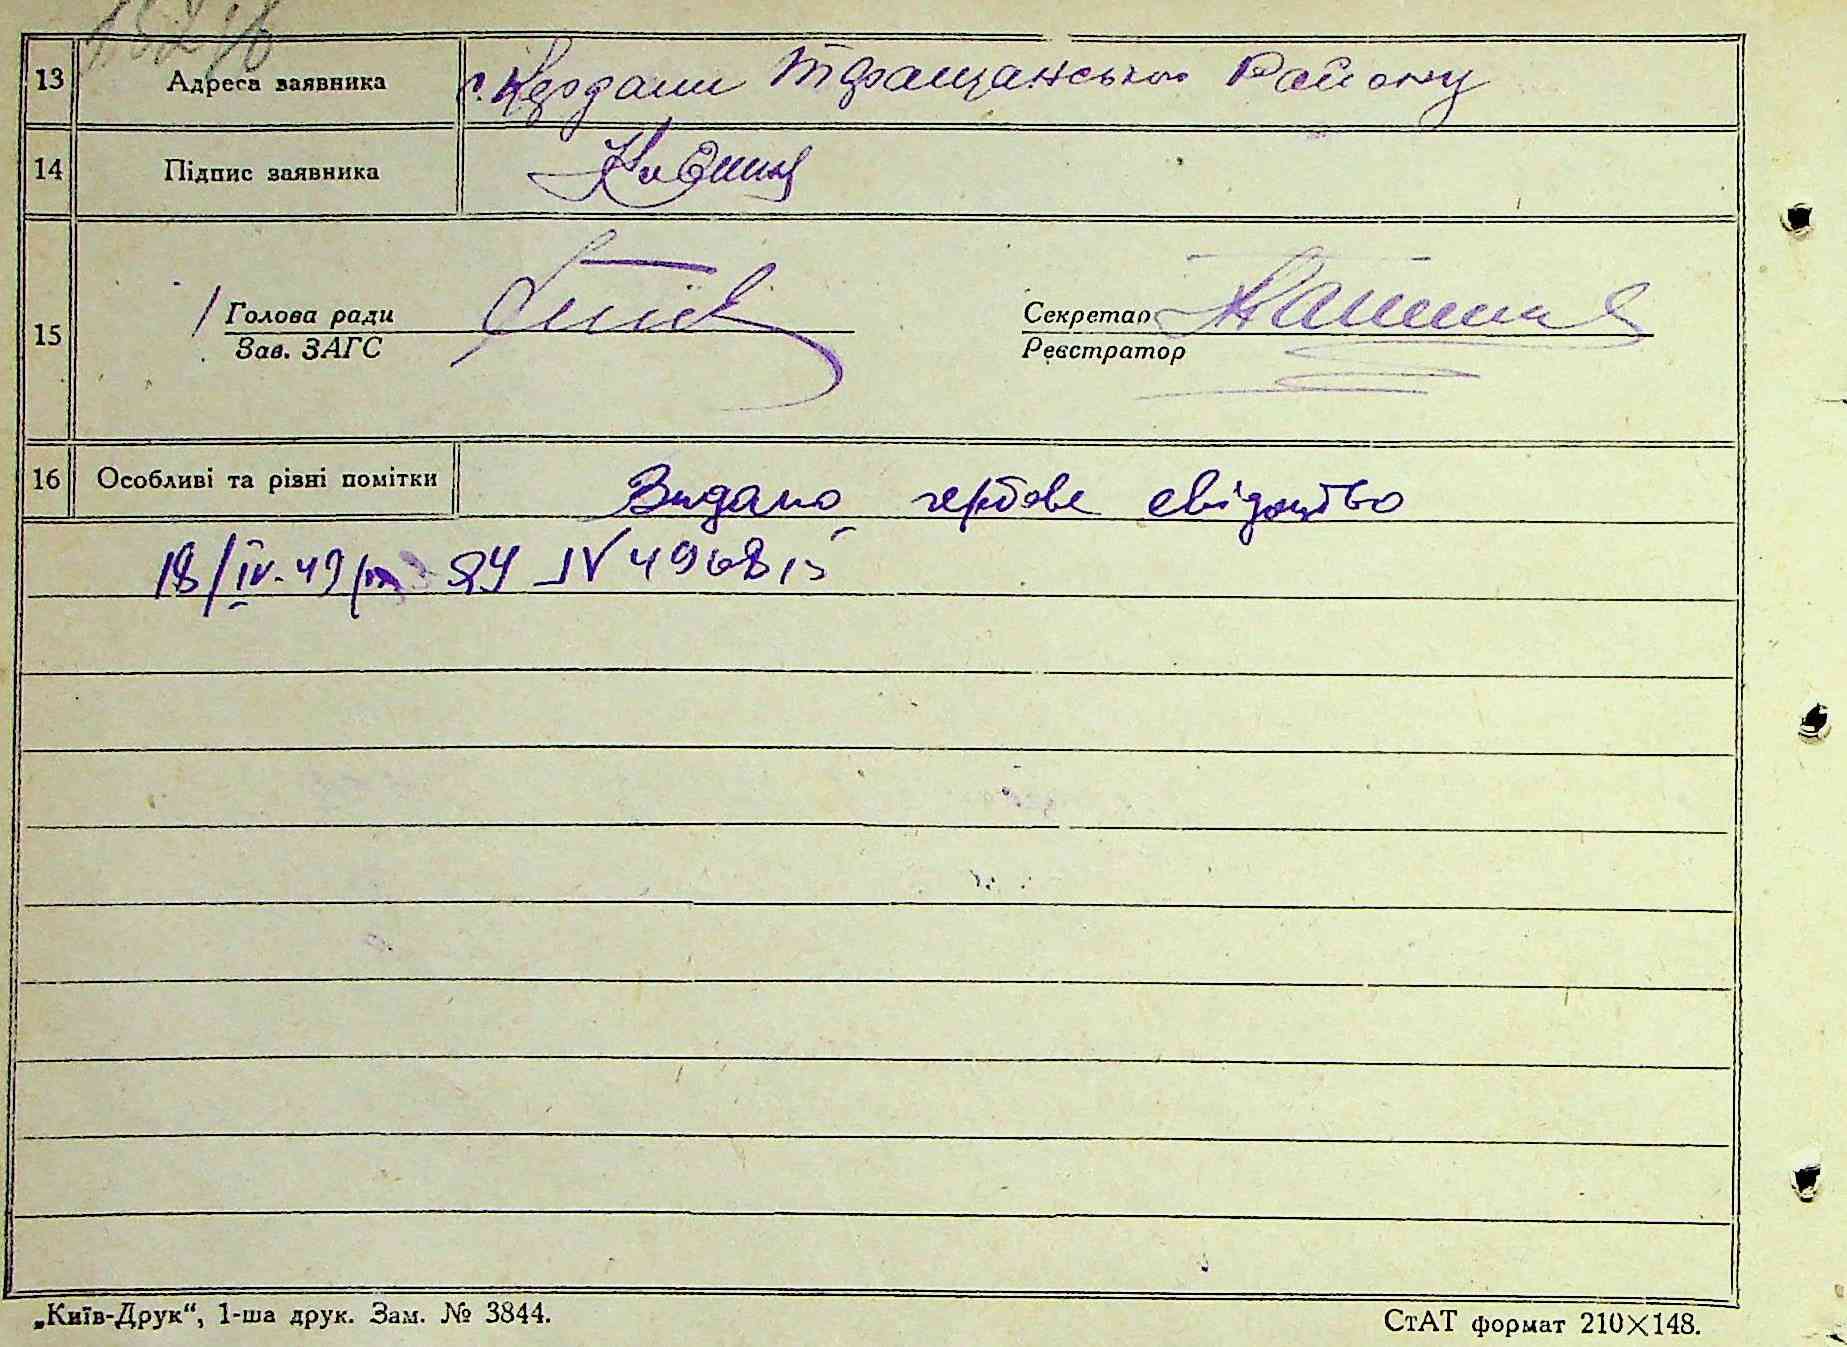 13 Адреса заявника с. Кердани Таращанського Району
14 Підпис заявника
15 Голова ради Секретар
Зав. ЗАГС Реєстратор
16 Особливі та різні помітки Видано гербове свідоцтво
18/IV-49
„Київ-Друк“, 1-ша друк. Зам. № 3844. СтАТ формат 210×148.